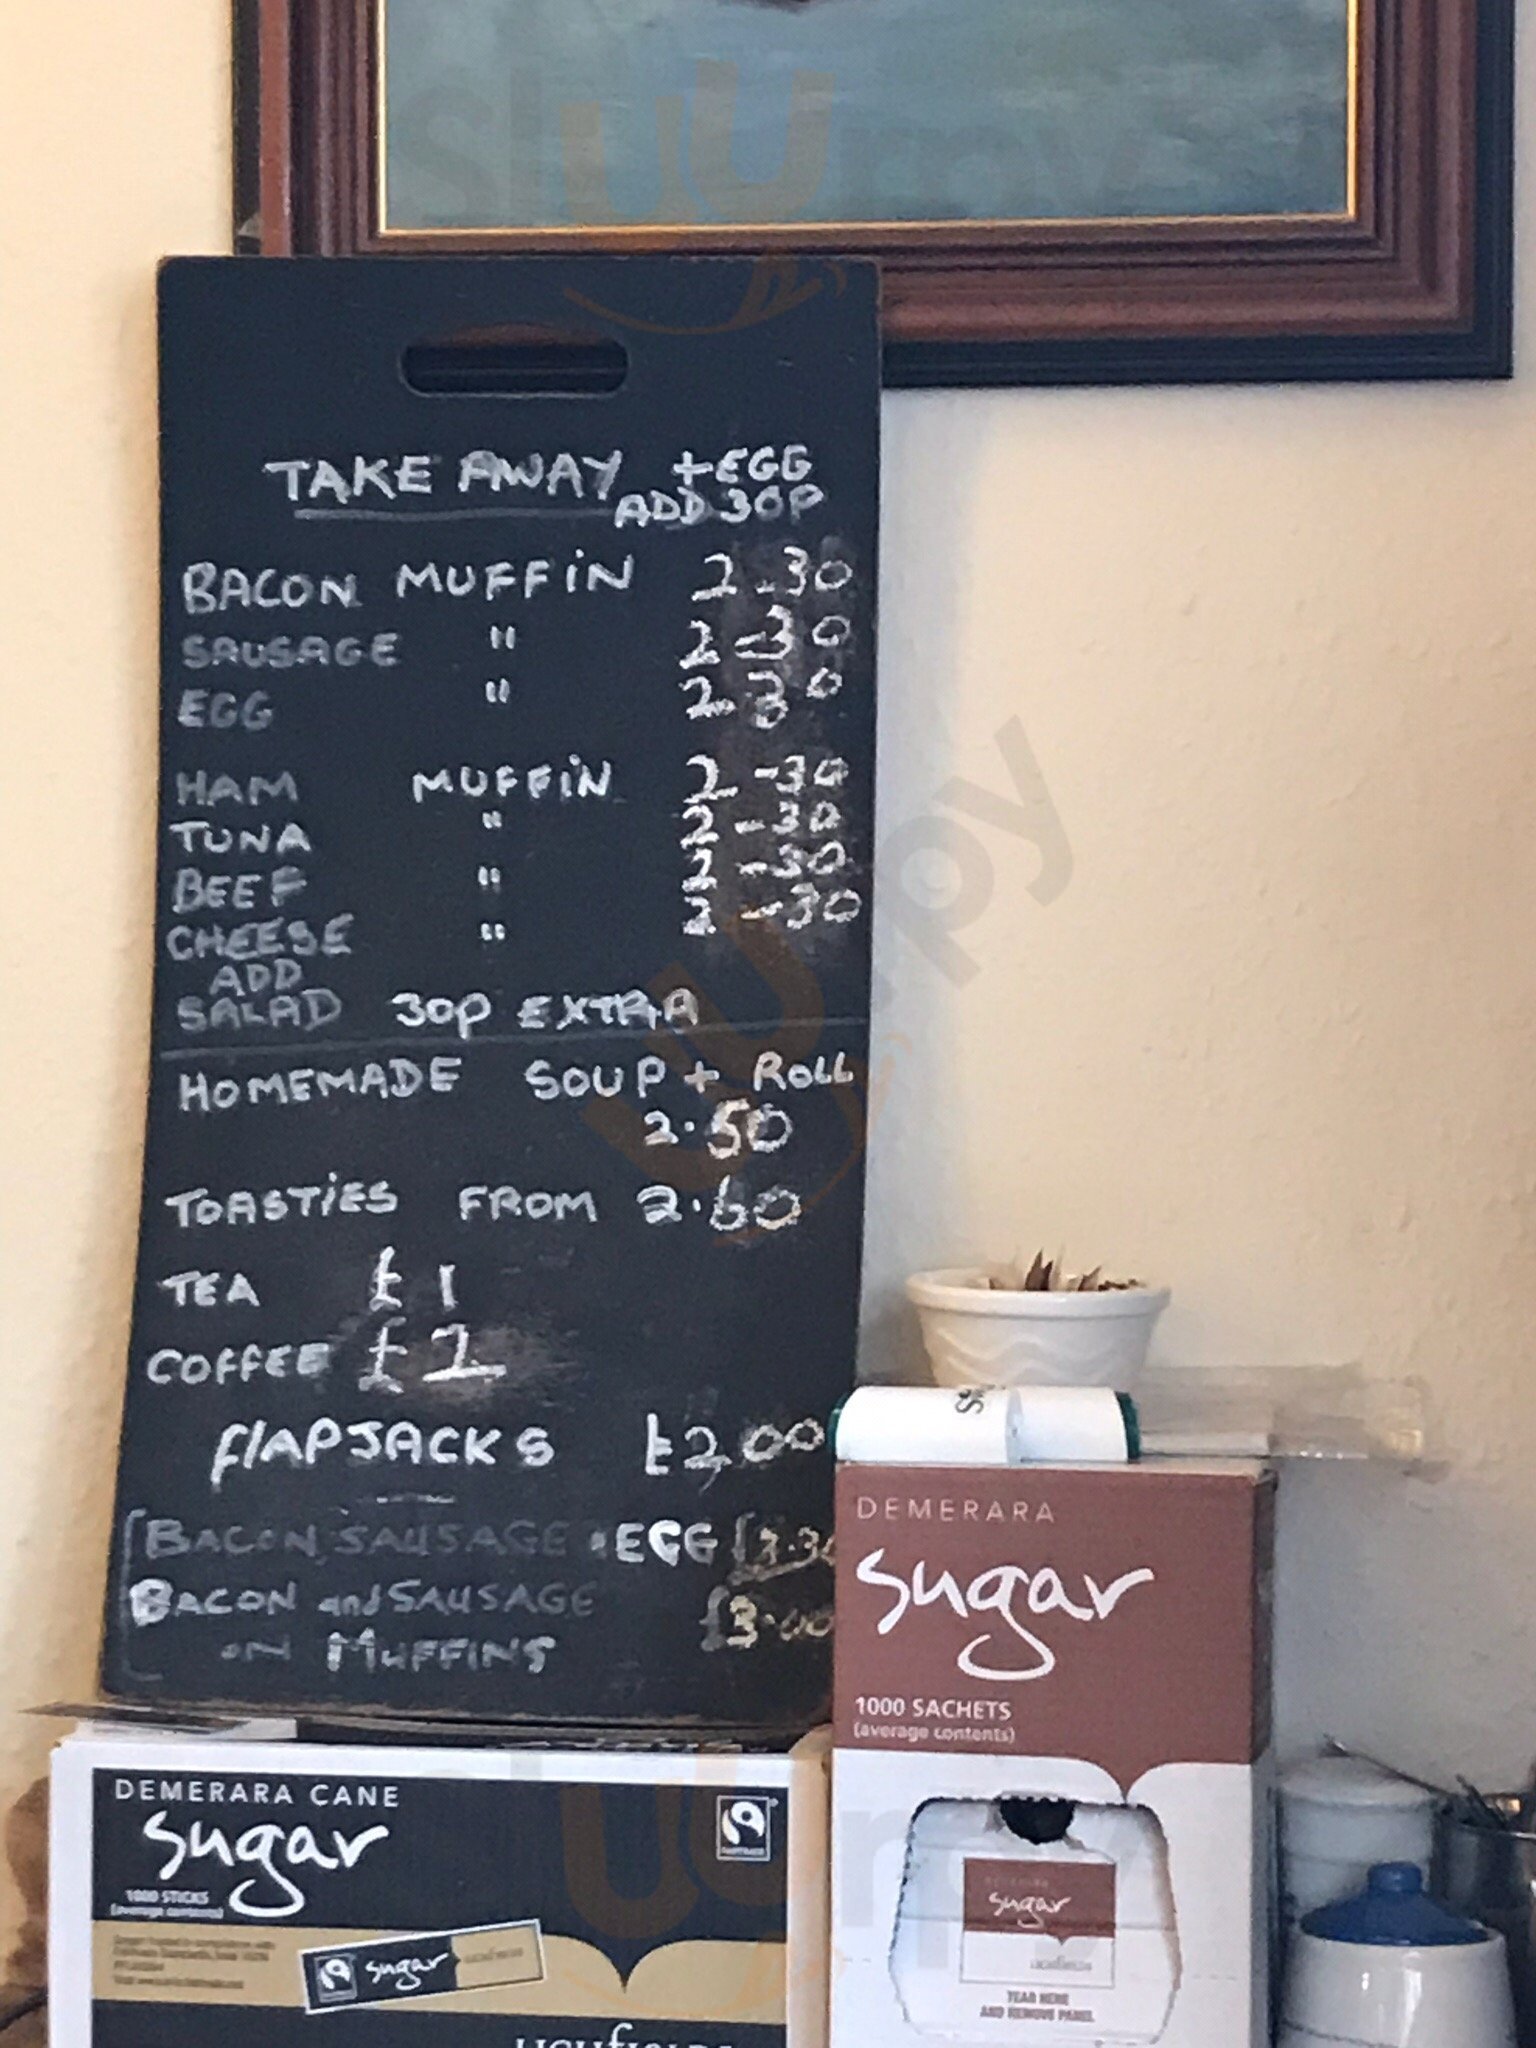 TAKE AWAY + EGG
ADD 30P
BACON MUFFIN 2-30
SAUSAGE " 2-30
EGG " 2-30
HAM MUFFIN 2-30
TUNA " 2-30
BEEF " 2-30
CHEESE " 2-30
ADD
SALAD 30p EXTRA
HOMEMADE SOUP + ROLL
2.50
TOASTIES FROM 2.60
TEA £1
COFFEE £2
flAPJACKS £2,00
BACON, SAUSAGE • EGG £3.30
BACON and SAUSAGE £3.00
ON MUFFINS
DEMERARA
sugar
1000 SACHETS
(average contents)
sugar
TEAR HERE
AND REMOVE PANEL
DEMERARA CANE
sugar
1000 STICKS
(average contents)
FAIRTRADE
sugar
LICHfIELDS
sluurpy
sluurpy
sluurpy